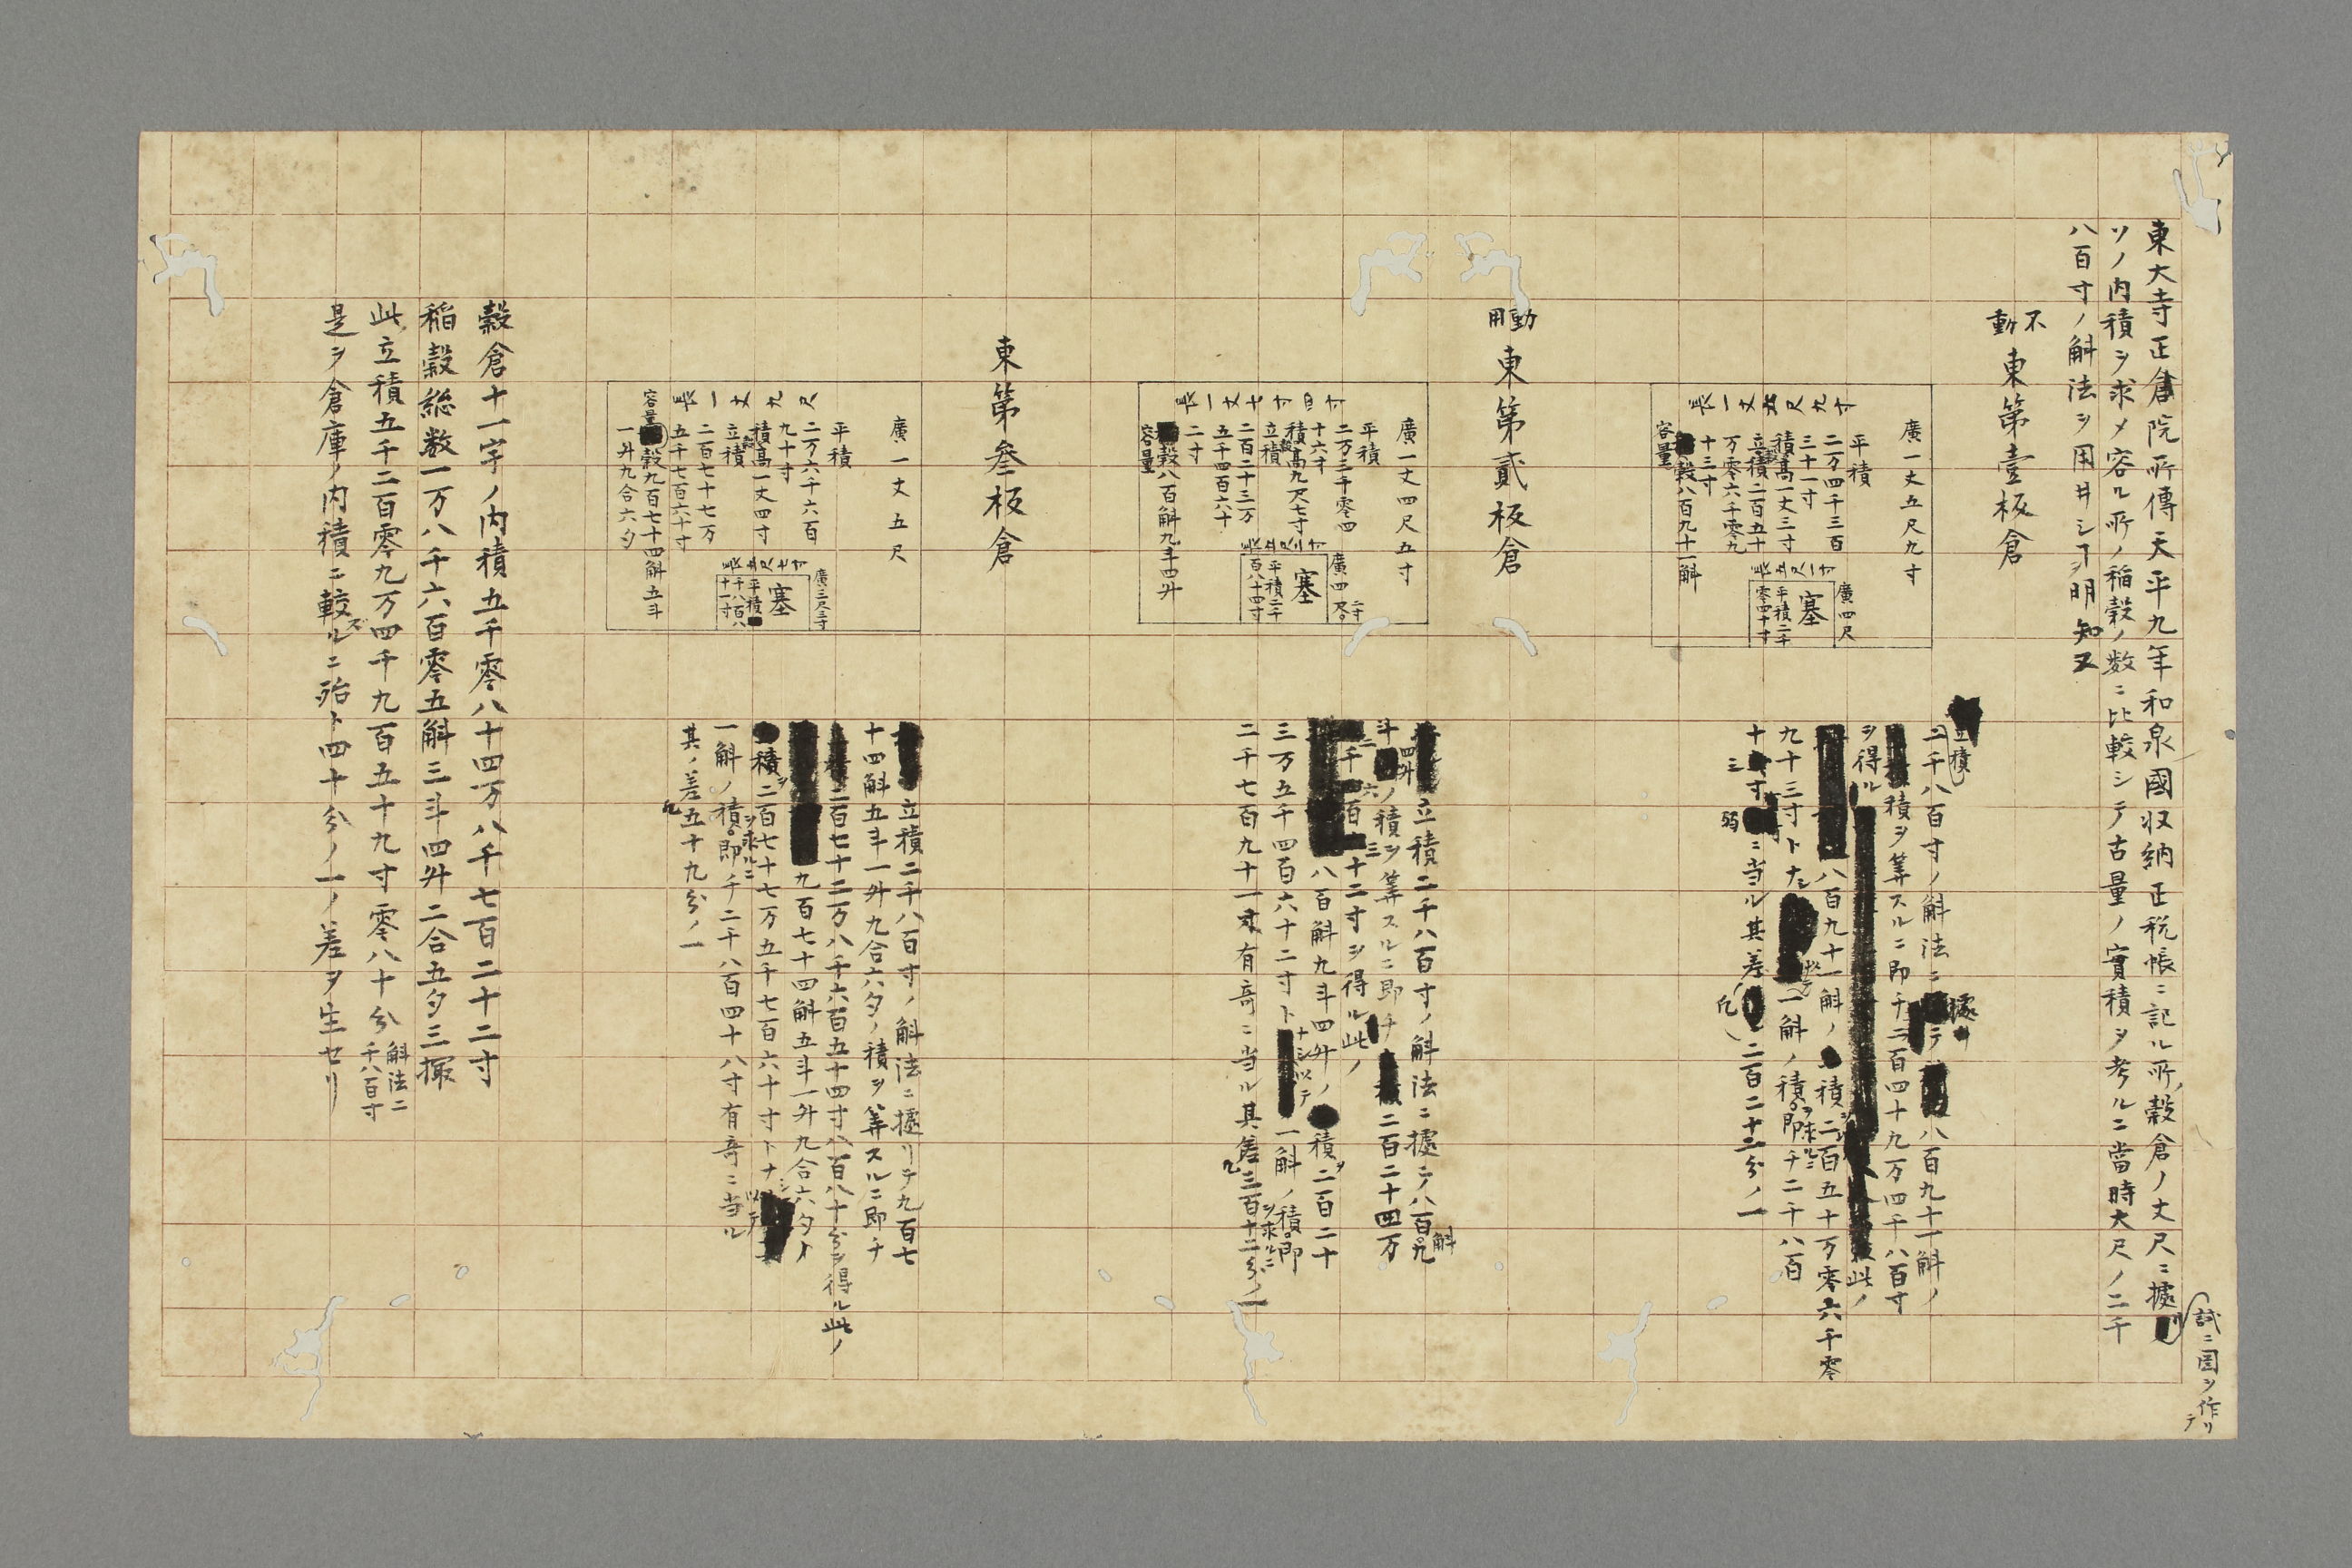 東大寺正倉院所傳天平九年和泉國収納正税帳ニ記ル所ノ穀倉ノ丈尺ニ據リ
試ニ図ヲ作リテ
ソノ内積ヲ求メ容ル所ノ稲穀ノ数ニ比較シテ古量ノ實積ヲ考ルニ當時大尺ノ二千
八百寸ノ斛法ヲ用井シヿヲ明知ス
不動
東第壹板倉
廣一丈五尺九寸
平積
二万四千三百
三十一寸
積高一丈三寸
立積二百五十
万零六千零九
十三寸
穀八百九十一斛
容量
廣四尺
塞
平積二千
零四十寸
立積
二千八百寸ノ斛法ニ據リテ八百九十一斛ノ
積ヲ筭スルニ即チ二百四十九万四千八百寸
ヲ得ル此ノ
八百九十一斛ノ積ヲ二百五十万零六千零
九十三寸トナシ以テ一斛ノ積ヲ求ルニ即チ二千八百
十三寸弱ニ当ル其差凡二百二十三分ノ一
動用
東第貳板倉
廣一丈四尺五寸
長一丈七寸四寸
平積
二万三千零四
十六寸
積高九尺七寸
立積
二百二十三万
五千四百六十
二寸
穀八百斛九斗四升
容量
塞
平積二千
百八十四寸
立積二千八百寸ノ斛法ニ據テ八百斛九
斗四升ノ積ヲ筭スルニ即チ二百二十四万
二千六百三十二寸ヲ得ル此ノ
八百斛九斗四升ノ積ヲ二百二十
三万五千四百六十二寸トナシ以テ一斛ノ積ヲ求ルニ即
二千七百九十一寸有奇ニ当ル其差凡三百十二分ノ一
東第叄板倉
廣一丈五尺
長一丈九尺
平積
二万六千六百
九十寸
積高一丈四寸
立積
二百七十七万
五千七百六十寸
容量
穀九百七十四斛五斗
一升九合六夕
廣三尺三寸
塞
平積
千八百八
十一寸
立積二千八百寸ノ斛法ニ據リテ九百七
十四斛五斗一升九合六夕ノ積ヲ筭スルニ即チ
二百七十二万八千六百五十四寸八百八十分ヲ得ル此ノ
九百七十四斛五斗一升九合六夕ノ
積ヲ二百七十七万五千七百六十寸トナシ以テ
一斛ノ積ヲ求ルニ即チ二千八百四十八寸有奇ニ当ル
其ノ差凡五十九分ノ一
穀倉十一宇ノ内積五千零八十四万八千七百二十二寸
稲穀総数一万八千六百零五斛三斗四升二合五夕三撮
此立積五千二百零九万四千九百五十九寸零八十分 斛法二千八百寸
是ヲ倉庫ノ内積ニ較ズルニ殆ト四十分ノ一ノ差ヲ生セリ